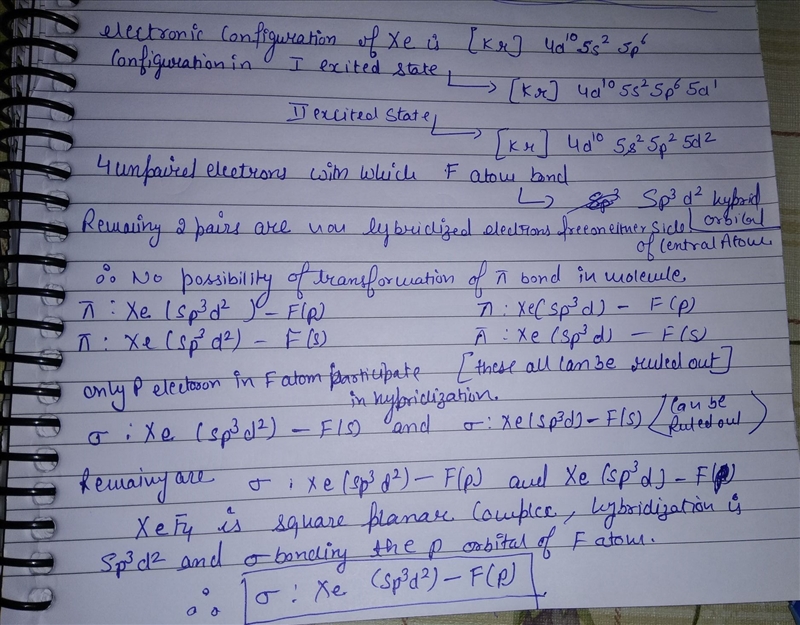 electronic Configuration of Xe is [Kr] 4d¹⁰ 5s² 5p⁶
Configuration in I exited state → [Kr] 4d¹⁰ 5s² 5p⁶ 5d¹
II excited state → [Kr] 4d¹⁰ 5s² 5p² 5d²
4 unpaired electrons with which F atom bond
→ Sp³d² hybrid orbital
Remaining 2 pairs are non hybridized electrons free on either side of Central Atom
∴ No possibility of transformation of π bond in molecule
π : Xe (sp³d²) – F(p) π : Xe(sp³d) – F(p)
π : Xe (sp³d²) – F(s) π : Xe (sp³d) – F(s)
only P electron in F atom participate in hybridization. [these all can be ruled out]
σ : Xe (sp³d²) – F(s) and σ : Xe(sp³d) – F(s) (Can be Ruled out)
Remaining are σ : Xe (sp³d²) – F(p) and Xe (sp³d) – F(p)
XeF₄ is square planar Complex, hybridization is
Sp³d² and σ bonding the p orbital of F atom.
∴ σ : Xe (Sp³d²) – F(p)